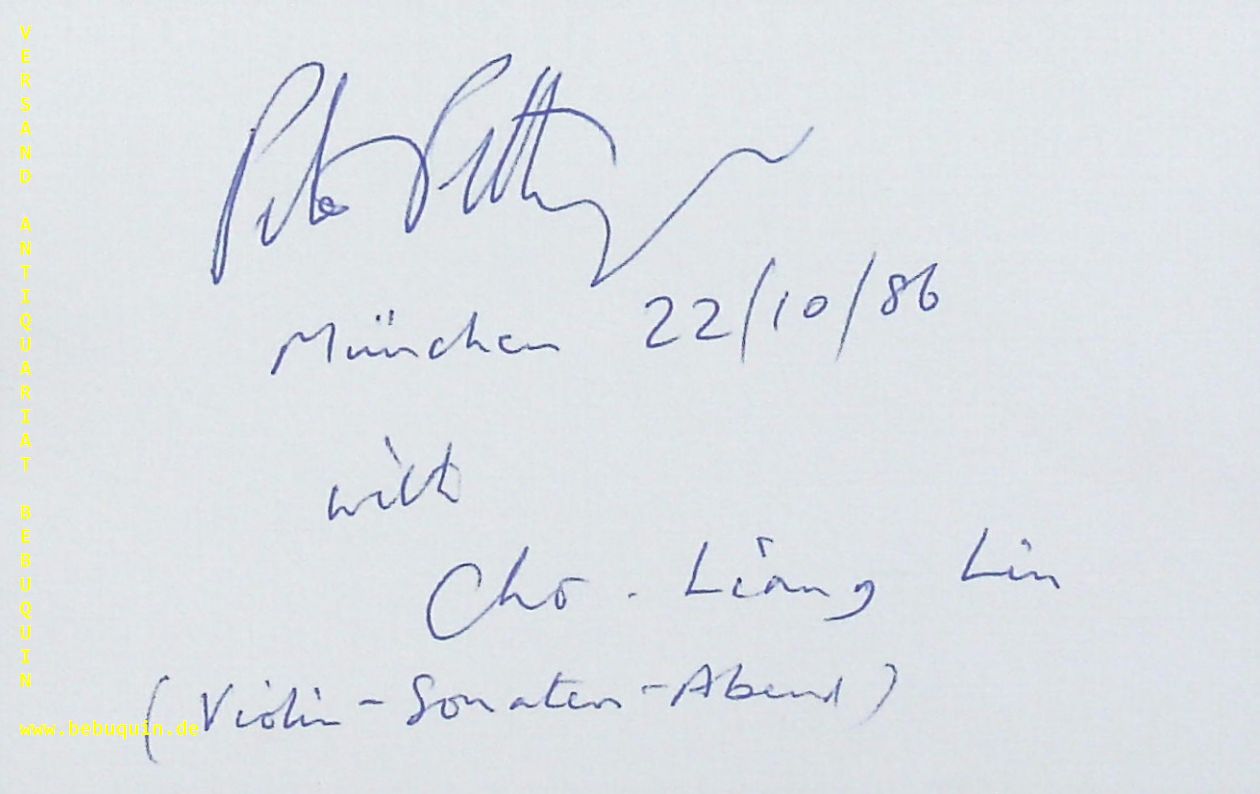 VERSAND ANTIQUARIAT BEBUQUIN
www.bebuquin.de
Peter
München 22/10/86
with
Cho-Liang Lin
(Violin-Sonaten-Abend)